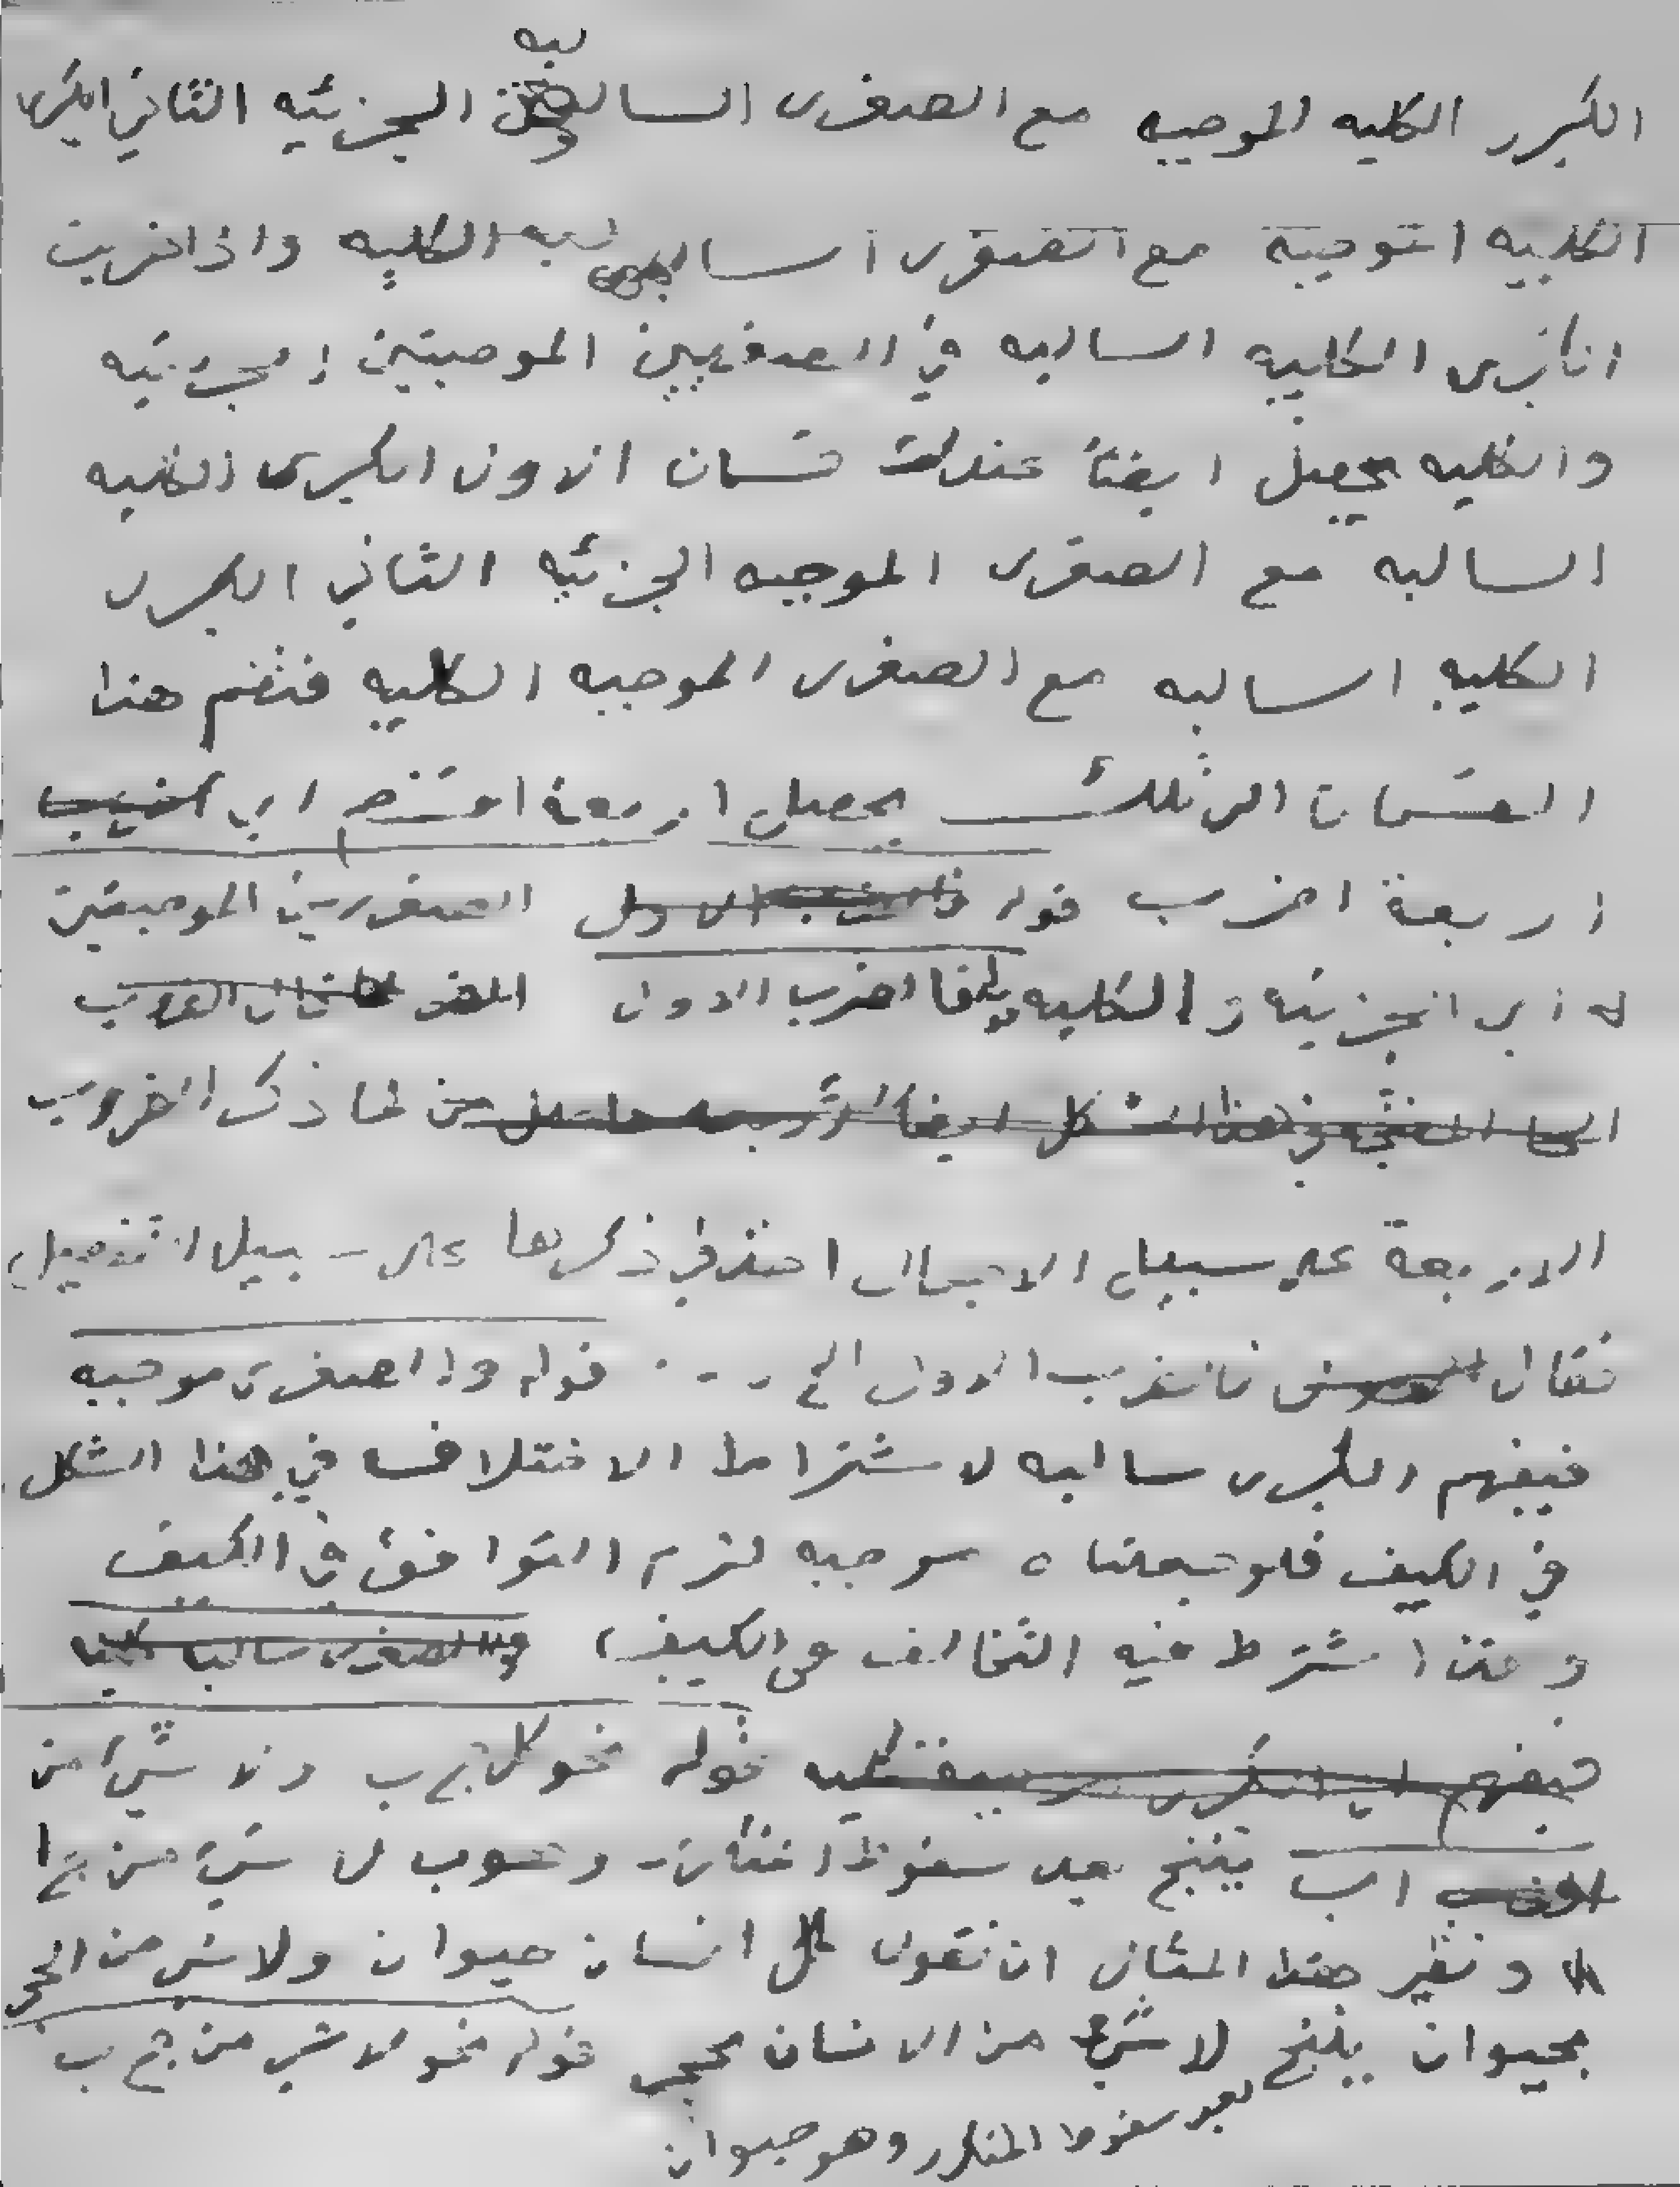 الكبرى الكليه الموجبه مع الصغرى السالبه الجزئيه الثاني الكبرى
الكليه الموجبة مع الصغرى السالبه الكليه واذا ضربت
الكبرى الكليه السالبه في الصغريين الموجبتين الجزئيه
والكليه يحصل ايضاً عندك قسمان الاول الكبرى الكليه
السالبه مع الصغرى الموجبه الجزئيه الثاني الكبرى
الكليه السالبه مع الصغرى الموجبه الكليه فتضم هذا
القسمان الى تلك يحصل اربعة اقسام اي
اربعة اضرب قوله الصغريين الموجبتين
اي الجزئيه والكليه الضرب الاول
لما ذكر الضروب
الاربعة على سبيل الاجمال اخذ في ذكرها على سبيل التفصيل
فقال فالضرب الاول الخ ... قوله والصغرى موجبه
فيفهم الكبرى سالبه لاشتراط الاختلاف في هذا الشكل
في الكيف فلو جعلناه موجبه لزم التوافق في الكيف
وهذا اشترط فيه التخالف في الكيف
قوله نحو كل ج ب ولا شيء من
اب ينتج بعد سقوط وهو ب لا شيء من ج ا
ونظير هذا المثال ان نقول كل انسان حيوان ولا شي من الحجر
بحيوان ينتج لا شيء من الانسان بحجر قوله نحو لا شي من ج ب
بعد سقوط المتكرر وهو حيوان